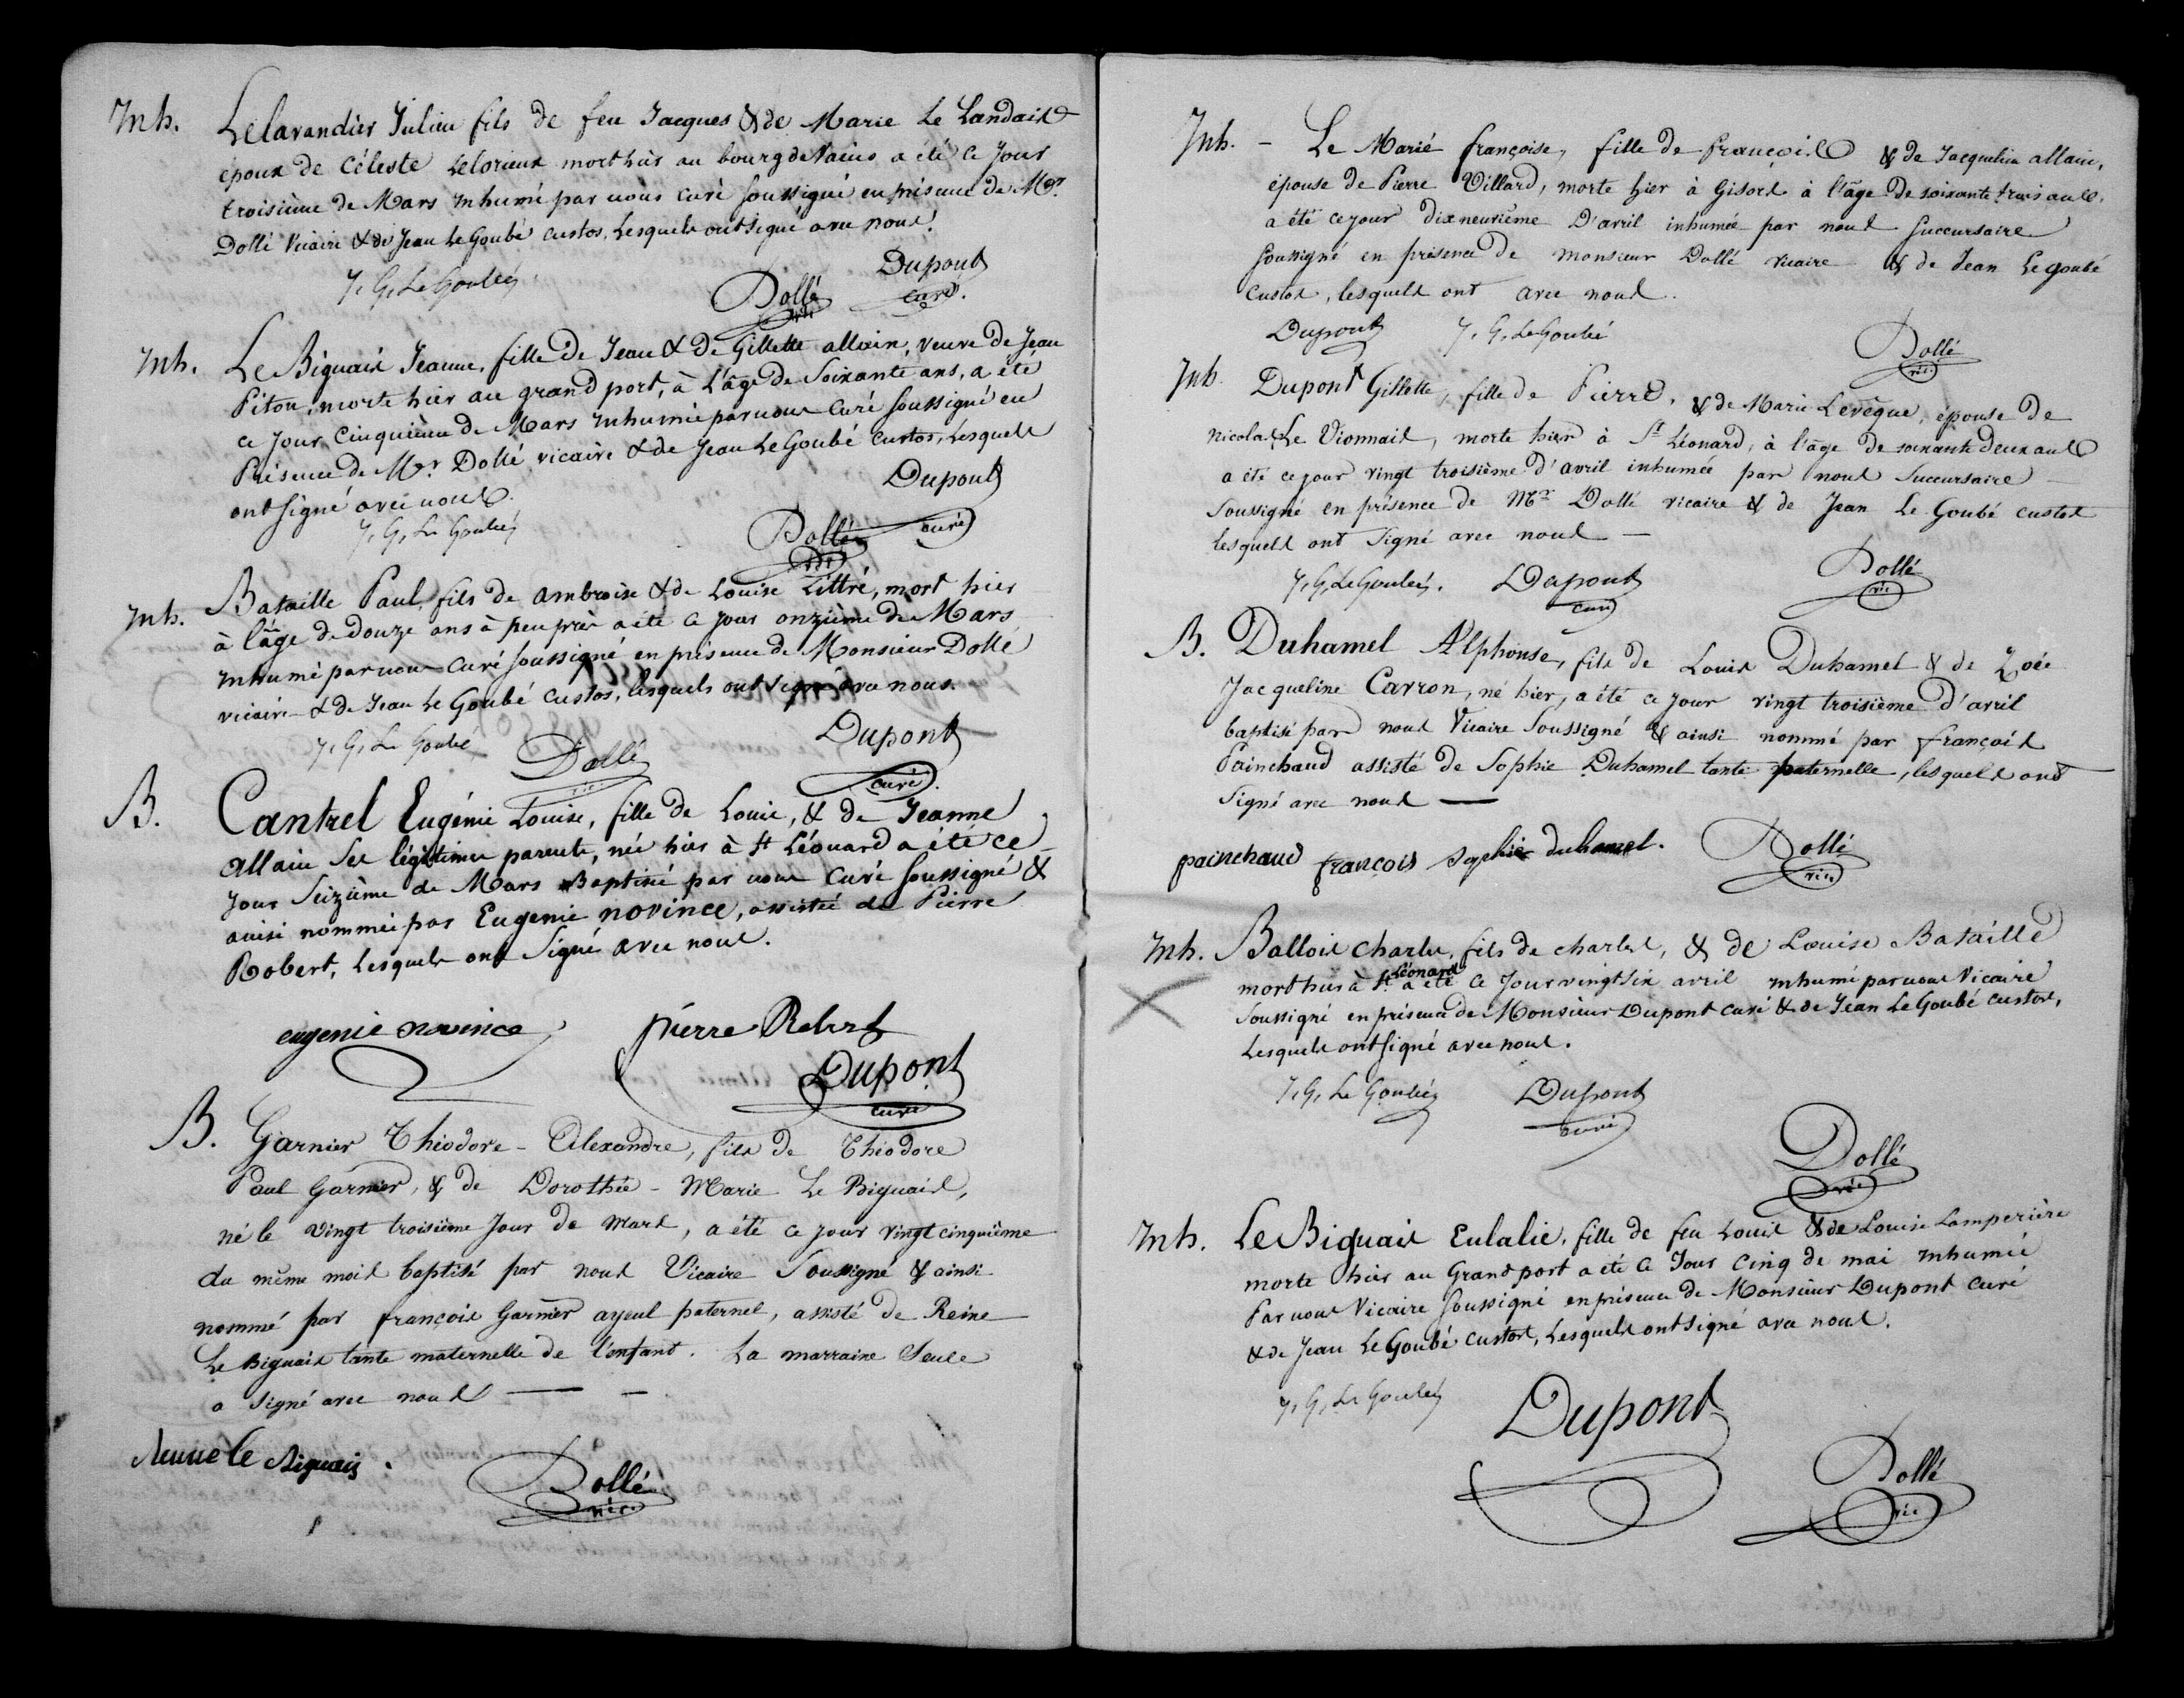 Inh. Lelavandier Julien fils de feu Jacques & de Marie Le Landais
époux de Céleste Lelorieux mort hier au bourg de Vains a été ce jour
troisième de Mars Inhumé par nous curé soussigné en présence de Mr
Dollé Vicaire & de Jean Le Goubé custos, Lesquels ont signé avec nous.
J, G, Le Goubé, Dollé vic Dupont curé.
Inh. Le Biguais Jeanne, fille de Jean & de Gillette allain, veuve de Jean
Piton, morte hier au grand port, à L'âge de Soixante ans, a été
ce jour Cinquième de Mars Inhumée par nous Curé soussigné en
Présence de Mr Dollé vicaire & de Jean Le Goubé custos, Lesquels
ont signé avec nous.
J, G, Le Goubé, Dollé vic Dupont curé
Inh. Bataille Paul, fils de ambroise & de Louise Littré, mort hier
à l'âge de douze ans à peu près a été ce jour onzième de Mars
Inhumé par nous curé soussigné en présence de Monsieur Dollé
vicaire & de Jean Le Goubé custos, lesquels ont signé avec nous.
J, G, Le Goubé Dollé vic Dupont curé.
B. Cantrel Eugénie Louise, fille de Louis, & de Jeanne
allain ses légitimes parents, née hier à St Léonard a été ce
jour Seizième de Mars Baptisée par nous Curé soussigné &
ainsi nommée par Eugenie novince, assistée de Pierre
Robert, Lesquels ont Signé avec nous.
eugenie novince, pierre Robert
Dupont curé
B. Garnier Théodore - Alexandre, fils de Théodore
Paul Garnier, & de Dorothée - Marie Le Biguais,
né le vingt troisième jour de mars, a été ce jour vingt cinquième
du même mois baptisé par nous Vicaire Soussigné & ainsi
nommé par françois Garnier ayeul paternel, assisté de Reine
Le Biguais tante maternelle de l'enfant. La marraine Seule
a signé avec nous — —
le Biguais.
Dollé vic.
Inh. - Le Marié françoise, fille de françois & de Jacqueline allain,
épouse de Pierre Villard, morte hier à Gisors à l'âge de soixante trois ans.
a été ce jour dix neuvième D'avril inhumée par nous Succursaire
soussigné en présence de monsieur Dollé vicaire & de Jean Le goubé
Custos, lesquels ont avec nous.
Dupont J, G, Le Goubé Dollé vic
Inh. Dupont Gillette, fille de Pierre, & de Marie Levêque, épouse de
Nicolas Le Vionnais, morte hier à St Léonard, à l'âge de soixante deux ans
a été ce jour vingt troisième d'avril inhumée par nous Succursaire
Soussigné en présence de Mr Dollé vicaire & de Jean Le Goubé custos
lesquels ont Signé avec nous —
J, G, Le Goubé, Dupont curé Dollé vic
B. Duhamel Alphonse, fils de Louis Duhamel & de Zoée
Jacqueline Carron, né hier, a été ce jour vingt troisième d'avril
baptisé par nous Vicaire Soussigné & ainsi nommé par françois
Painchaud assisté de Sophie Duhamel tante paternelle, lesquels ont
Signé avec nous —
painchaud françois Sophie duhamel. Dollé vic
Inh. Ballois charles, fils de charles, & de Louise Bataille
mort hier à St Léonard a été ce Jour vingt six avril Inhumé par nous Vicaire
Soussigné en présence de Monsieur Dupont curé & de Jean Le Goubé custos,
Lesquels ont signé avec nous.
J, G, Le Goubé, Dupont curé
Dollé vic
Inh. Le Biguais Eulalie, fille de feu Louis & de Louise Lamperière
morte hier au Grand port a été ce Jour Cinq de mai Inhumée
Par nous Vicaire soussigné en présence de Monsieur Dupont curé
& de Jean Le Goubé custos, Lesquels ont signé avec nous.
J, G, Le Goubé, Dupont
Dollé vic